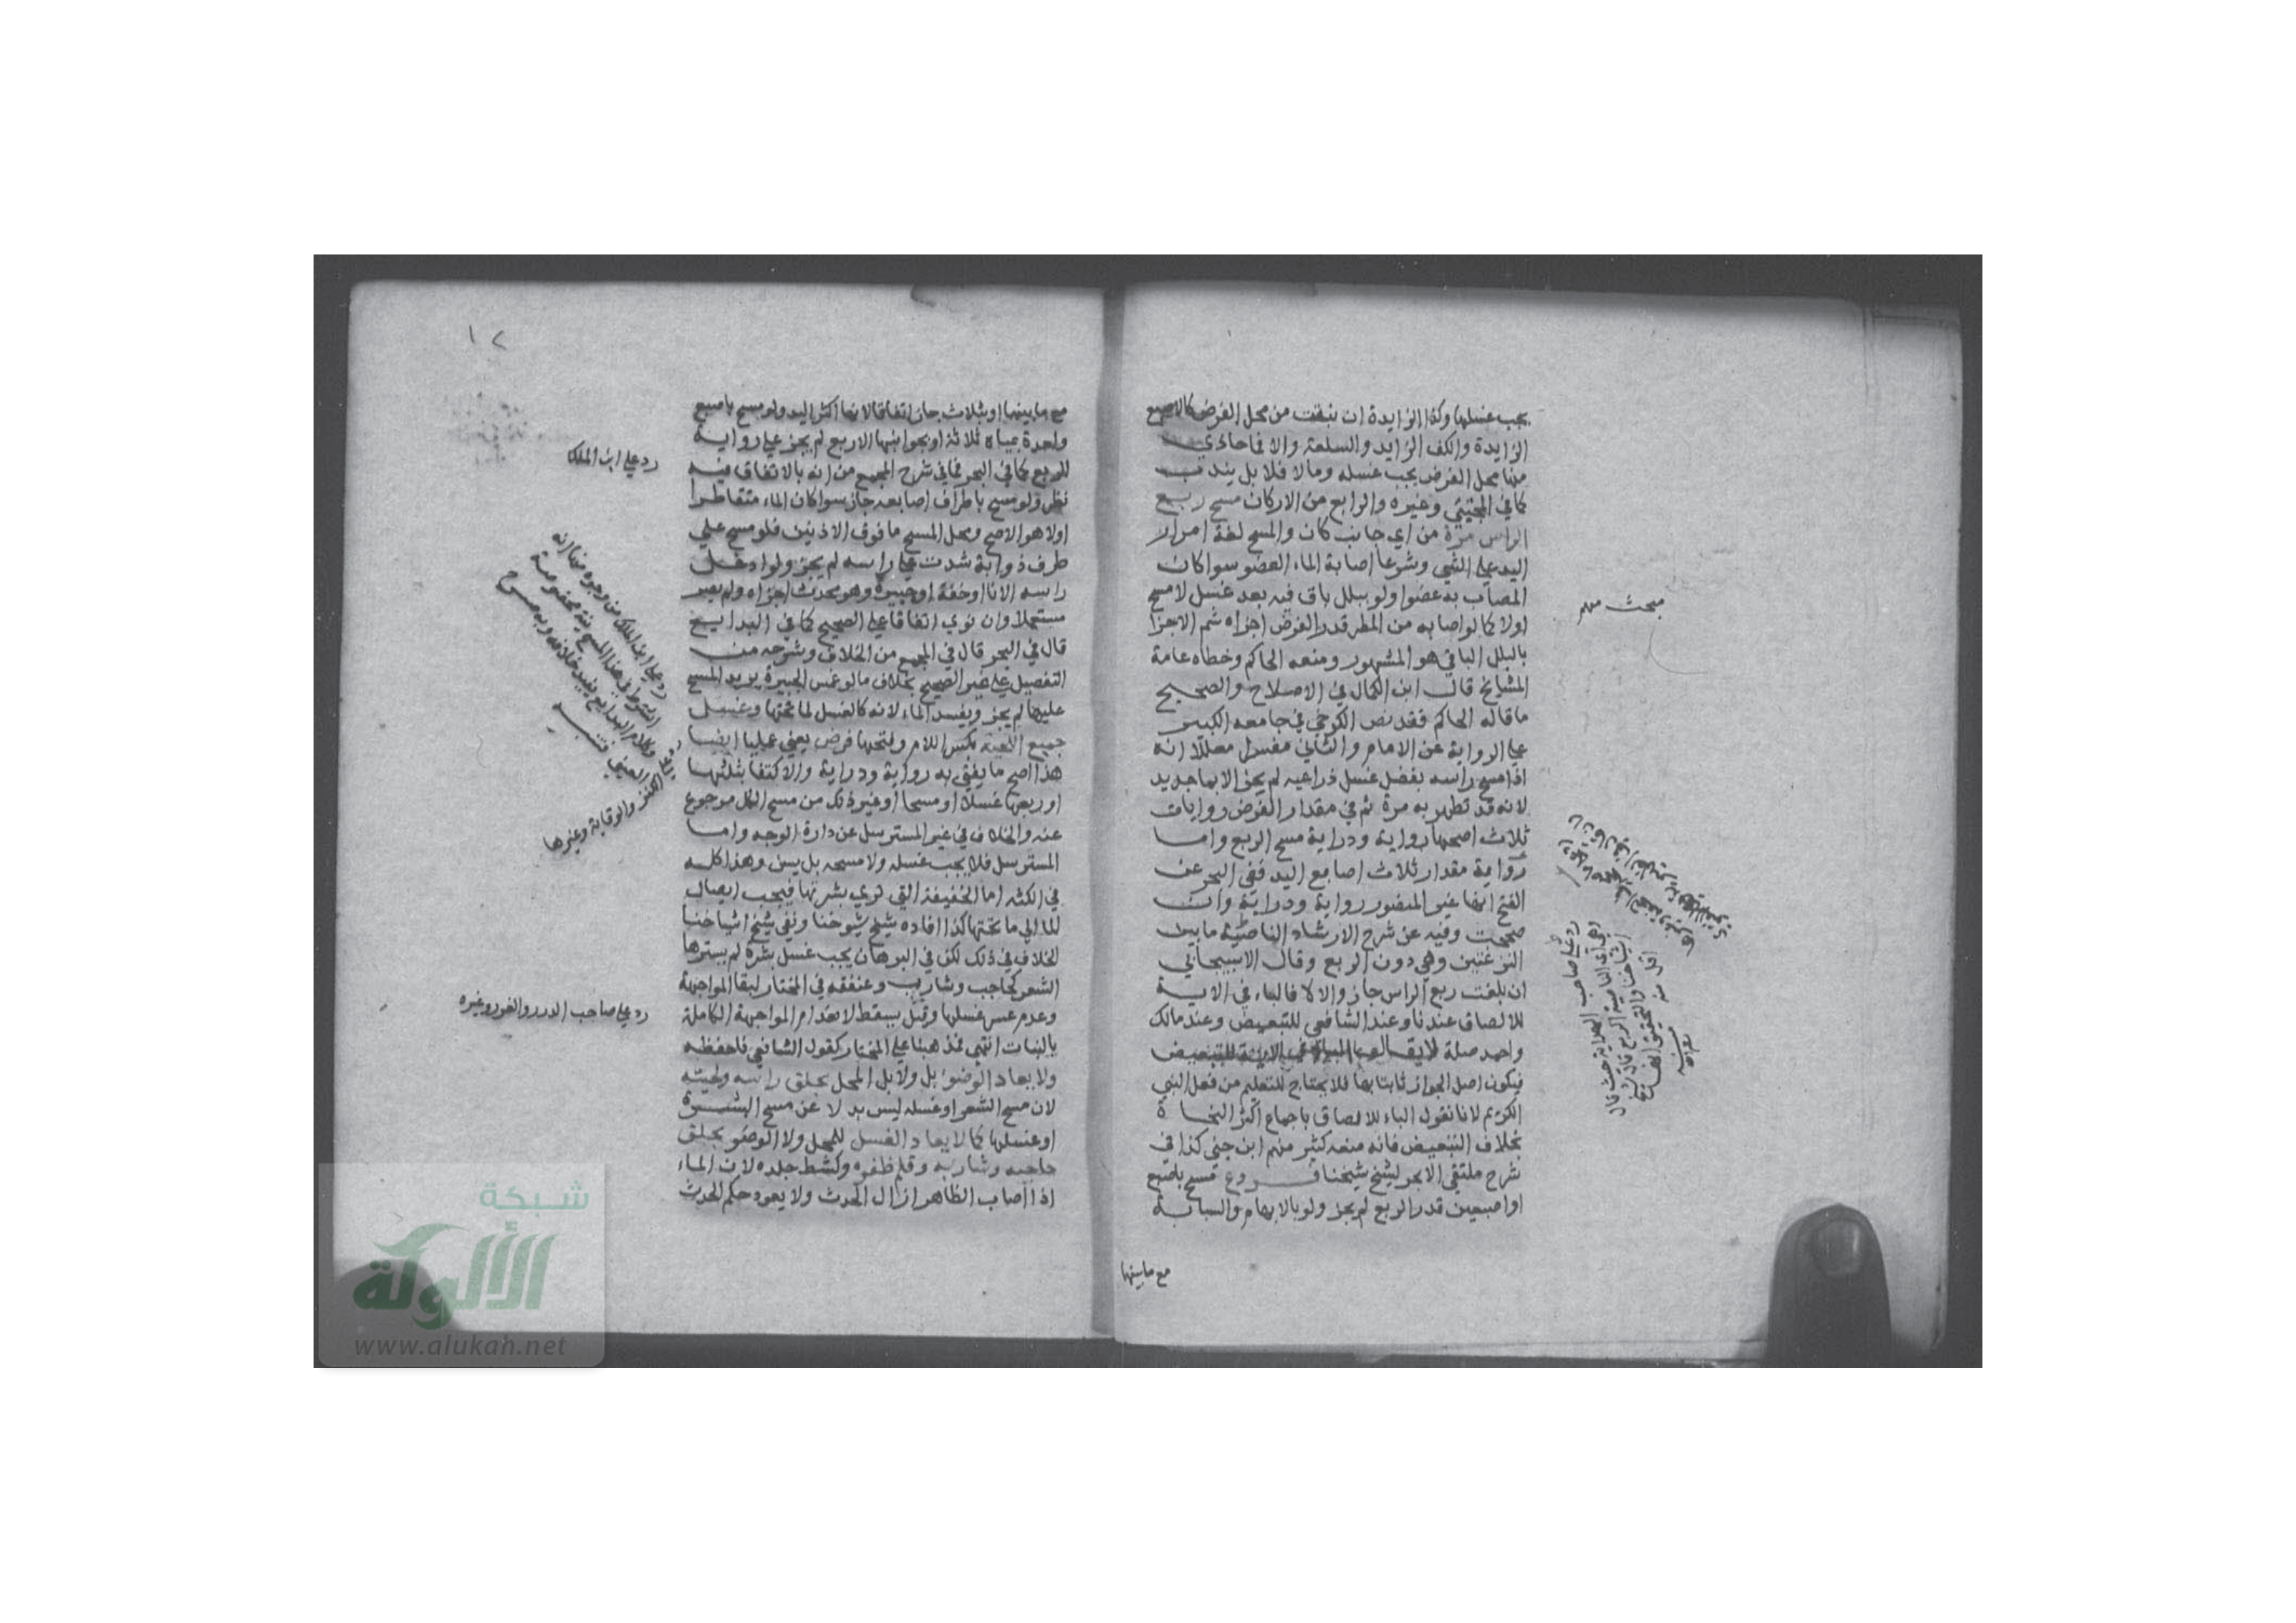 يجب غسلها وكذا الزايدة ان نبتت من محل الفرض كالاصبع
الزايدة والكف الزايد والسلعة والا فما حاذي
منها محل الفرض يجب غسله وما لا فلا بل يندب
كما في المجتبي وغيره والرابع من الاركان مسح ربع
الراس مرة من اي جانب كان والمسح لغة امرار
اليد علي الشي وشرعا اصابة الماء العضو سوا كان
المصاب به عضوا ولو ببلل باق فيه بعد غسل لا مسح
اولا كما لو اصابه من المطر قدر الفرض اجزاه ثم الاجزا
بالبلل الباقي هو المشهور ومنعه الحاكم وخطاه عامة
المشايخ قال ابن الكمال في الاصلاح والصحيح
ما قاله الحاكم فقد نص الكرخي في جامعه الكبير
علي الرواية عن الامام والثاني مفسرا معللا انه
اذا مسح راسه بفضل غسل ذراعيه لم يجز الا بما جديد
لانه قد تطهر به مرة ثم في مقدار الفرض روايات
ثلاث اصحها رواية ودراية مسح الربع واما
رواية مقدار ثلاث اصابع اليد ففي البحر عن
الفتح انها غير المنصور رواية ودراية وان
صححت وفيه عن شرح الارشاد الناصية ما بين
النزعتين وهي دون الربع وقال الاسبيجابي
ان بلغت ربع الراس جاز والا لا فالباء في الاية
للالصاق عندنا وعند الشافعي للتبعيض وعند مالك
واحمد صلة لا يقال الباء في الاية للتبعيض
فيكون اصل الجواز ثابتا بها فلا يحتاج للتعليم من فعل النبي
الكريم لانا نقول الباء للالصاق باجماع اكثر النحاة
بخلاف التبعيض فانه منعه كثير منهم ابن جني كذا في
شرح ملتقي الابحر لشيخ شيخنا فروع مسح باصبع
او اصبعين قدر الربع لم يجز ولو بالابهام والسبابة
مع ما بينها
مبحث مهم
رد علي صاحب الهداية حيث قال
١٢
مع ما بينها او بثلاث جاز اتفاقا لانها اكثر اليد ولو مسح باصبع
واحدة بمياه ثلاثة او بجوانبها الاربع لم يجز علي رواية
الربع كما في البحر فما في شرح المجمع من انه بالاتفاق فيه
نظر ولو مسح باطراف اصابعه جاز سوا كان الماء متقاطرا
اولا هو الاصح ومحل المسح ما فوق الاذنين فلو مسح علي
طرف ذوابة شدت علي راسه لم يجز ولو ادخل
راسه الانا او خفه او جبيرة وهو محدث اجزاه ولم يصر
مستعملا وان نوي اتفاقا علي الصحيح كما في البدايع
قال في البحر قال في المجمع من الخلاف وشرحه من
التفصيل علي غير الصحيح بخلاف ما لو غمس الجبيرة يريد المسح
عليها لم يجز ويفسد الماء لانه كالغسل لما تحتها وغسل
جميع اللحية بكسر اللام وفتحها فرض يعني عمليا ايضا
هذا اصح ما يفتي به رواية ودراية والاكتفا بثلثها
او ربعها غسلا او مسحا او غير ذلك من مسح الكل مرجوع
عنه والخلاف في غير المسترسل عن دارة الوجه واما
المسترسل فلا يجب غسله ولا مسحه بل يسن وهذا كله
في الكثه اما الخفيفة التي تري بشرتها فيجب ايصال
الما الي ما تحتها كذا افاده شيخ شيوخنا ونفي شيخ اشياخنا
الخلاف في ذلك لكن في البرهان يجب غسل بشرة لم يسترها
الشعر كحاجب وشارب وعنفقه في المختار لبقا المواجهة
وعدم عسر غسلها وقيل يسقط لانعدام المواجهة الكاملة
بالنبات انتهي فمذهبنا علي المختار كقول الشافعي فاحفظه
ولا يعاد الوضوء بل ولا بل المحل بحلق راسه ولحيته
لان مسح الشعر او غسله ليس بدلا عن مسح البشرة
او غسلها كما لا يعاد الغسل للمحل ولا الوضو بحلق
حاجبه وشاربه وقلم ظفره وكشط جلده لان الماء
اذا اصاب الظاهر ازال الحدث ولا يعود حكم الحدث
رد علي ابن الملك
رد علي صاحب الدرر والغرر وغيره
شبكة
الألوكة
www.alukah.net